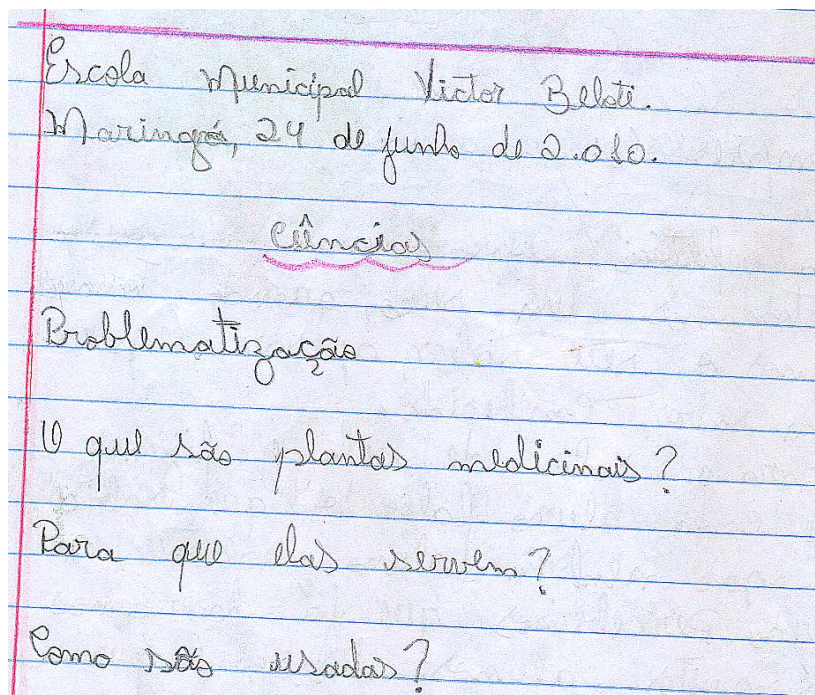 Escola Municipal Victor Beloti.
Maringá, 24 de junho de 2.010.
Ciências
Problematização
O que são plantas medicinais?
Para que elas servem?
Como são usadas?